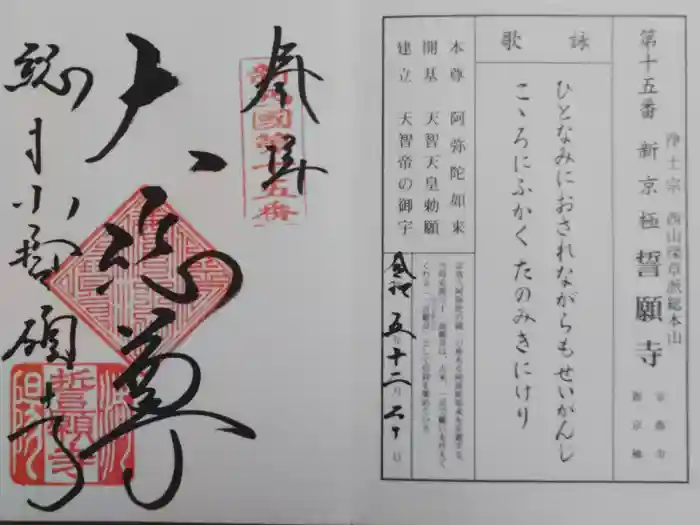 第十五番 新京極 誓願寺
浄土宗 西山深草派総本山
京都市
新京極
詠歌
ひとなみにおされながらもせいがんし
こゝろにふかく たのみきにけり
本尊 阿弥陀如来
開基 天智天皇勅願
建立 天智帝の御宇
令和五年十二月二十日
奉拝
新西國第十五番
大悲尊
総本山誓願寺
誓願寺